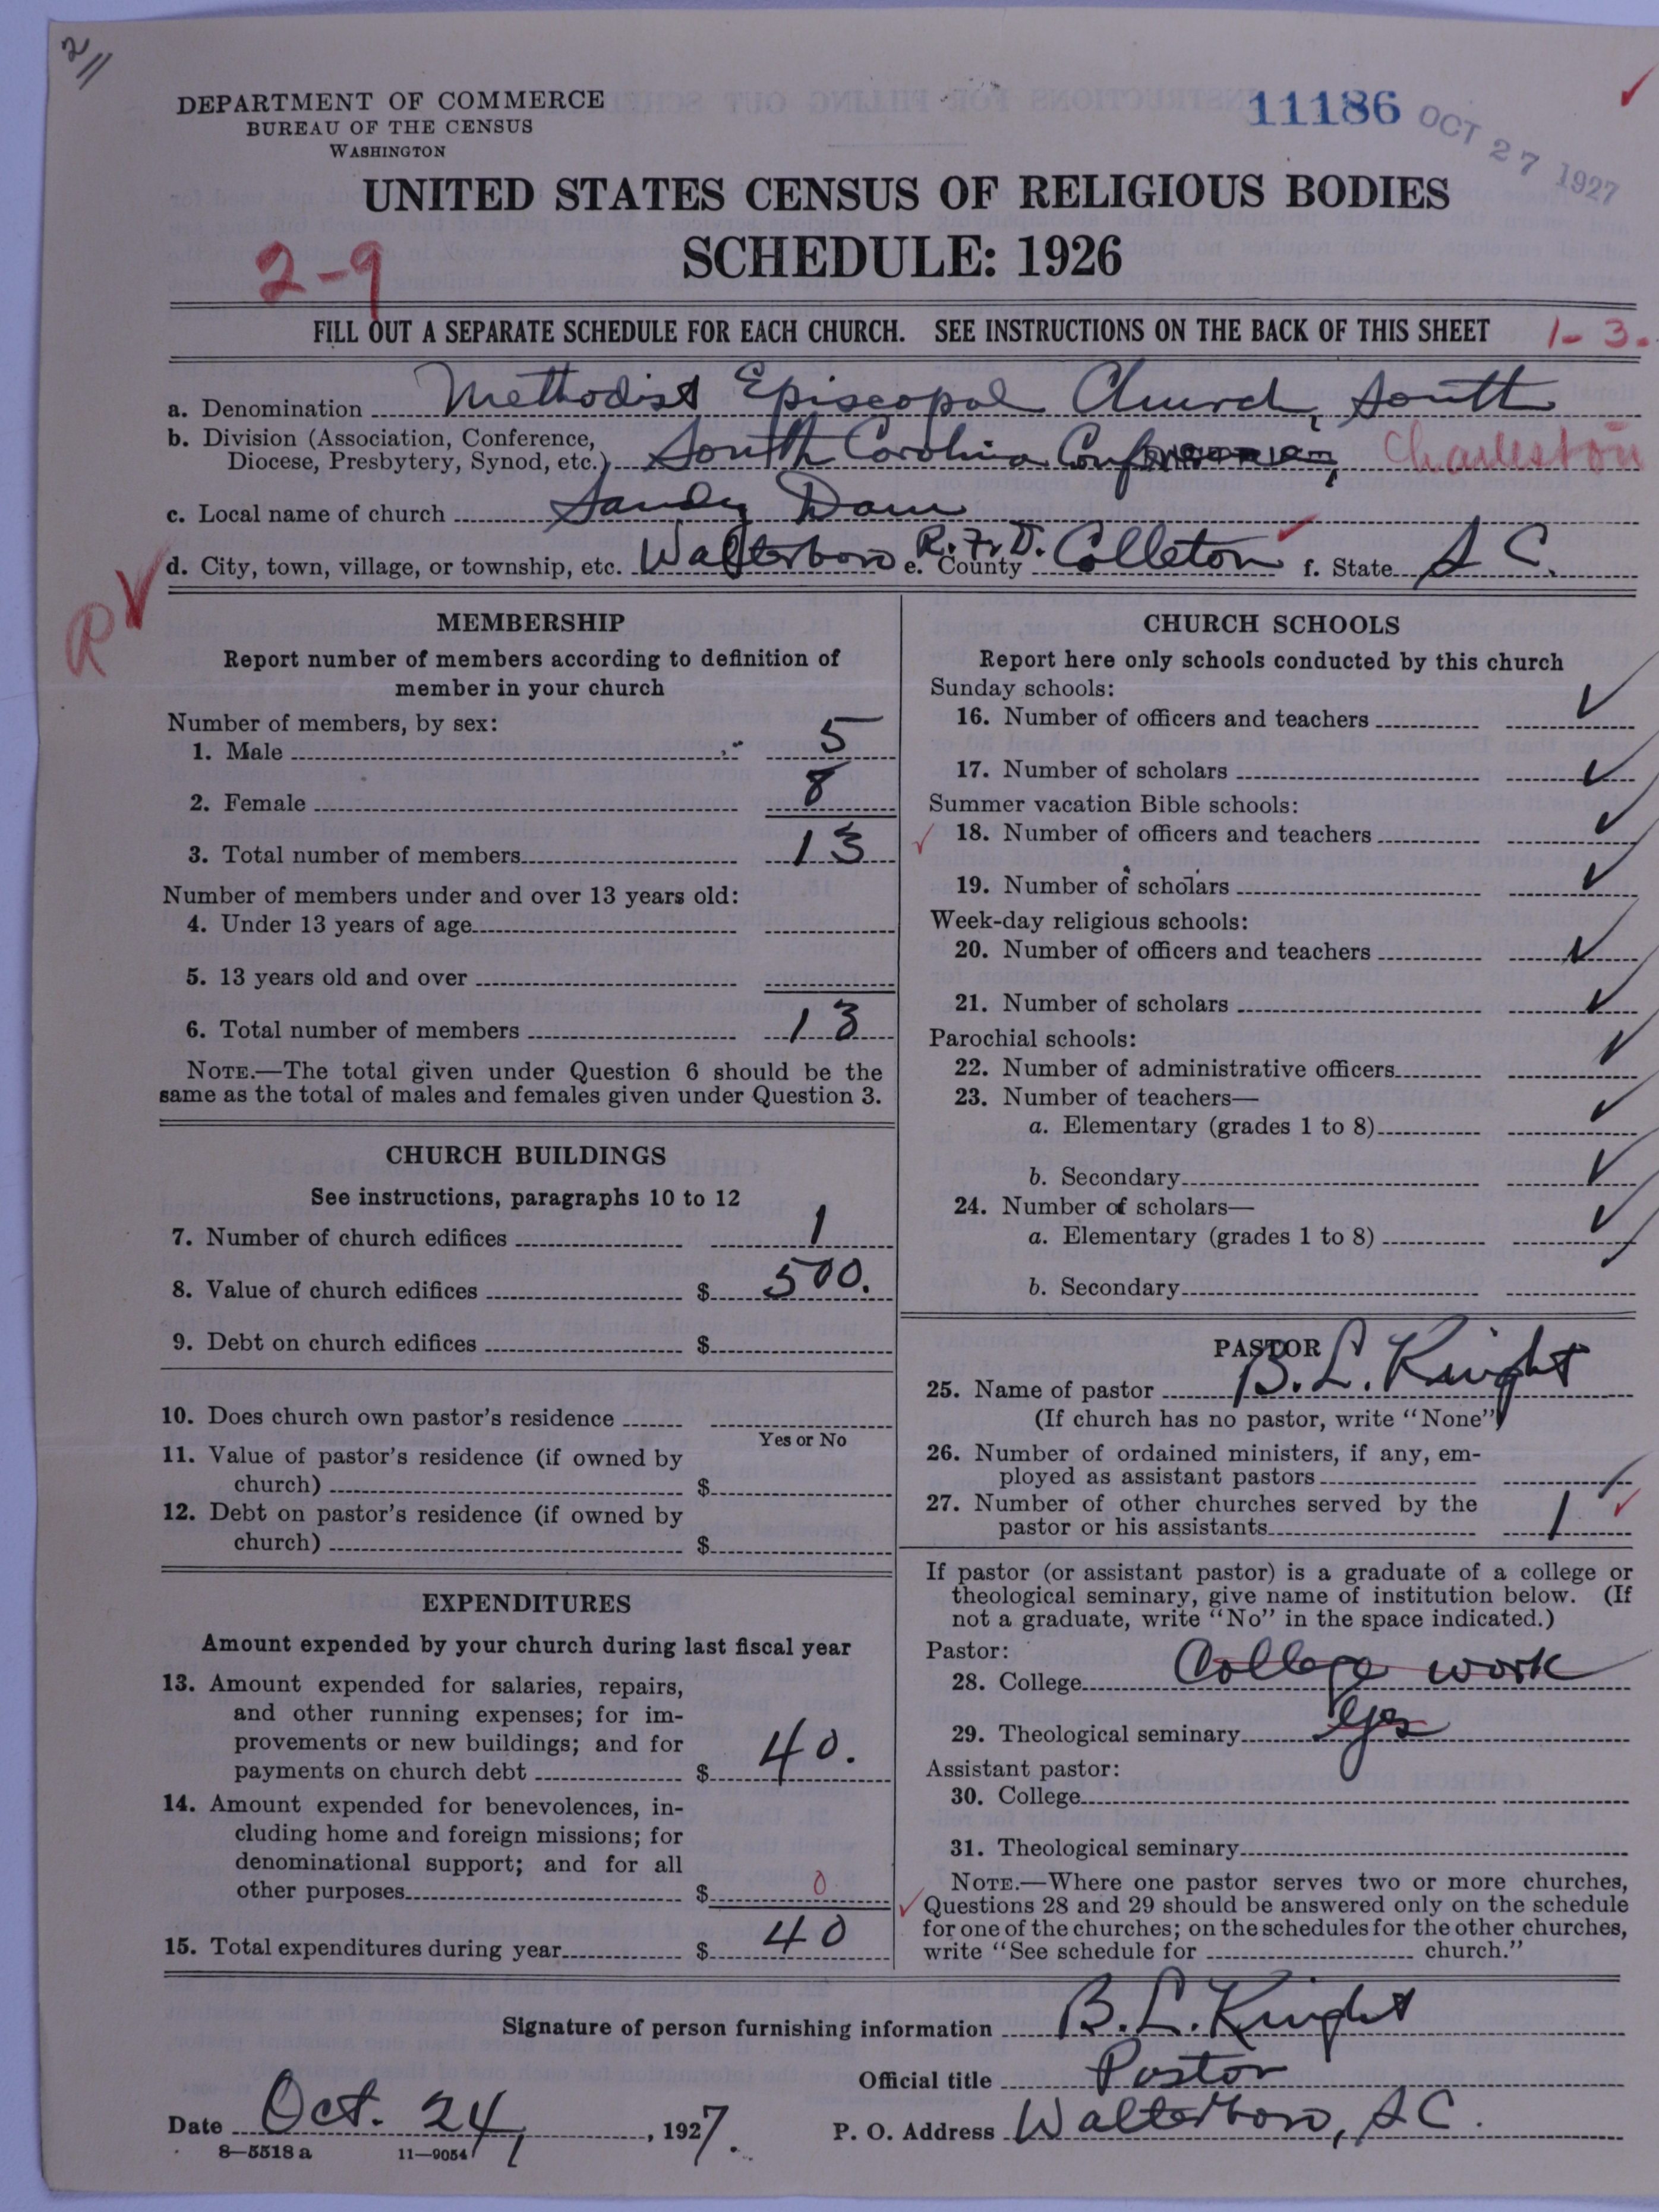 2//
DEPARTMENT OF COMMERCE
BUREAU OF THE CENSUS
WASHINGTON
11186
OCT 27 1927
UNITED STATES CENSUS OF RELIGIOUS BODIES
SCHEDULE: 1926
2-9
FILL OUT A SEPARATE SCHEDULE FOR EACH CHURCH. SEE INSTRUCTIONS ON THE BACK OF THIS SHEET 1-3.
a. Denomination Methodist Episcopal Church, South
b. Division (Association, Conference,
Diocese, Presbytery, Synod, etc.) South Carolina Conf Charleston
c. Local name of church Sandy Dam
d. City, town, village, or township, etc. Walterboro R.F.D. e. County Colleton f. State S C.
R
MEMBERSHIP
Report number of members according to definition of
member in your church
Number of members, by sex:
1. Male 5
2. Female 8
3. Total number of members 13
Number of members under and over 13 years old:
4. Under 13 years of age
5. 13 years old and over
6. Total number of members 13
NOTE.—The total given under Question 6 should be the
same as the total of males and females given under Question 3.
CHURCH BUILDINGS
See instructions, paragraphs 10 to 12
7. Number of church edifices 1
8. Value of church edifices $ 500.
9. Debt on church edifices $
10. Does church own pastor's residence
Yes or No
11. Value of pastor's residence (if owned by
church) $
12. Debt on pastor's residence (if owned by
church) $
EXPENDITURES
Amount expended by your church during last fiscal year
13. Amount expended for salaries, repairs,
and other running expenses; for im-
provements or new buildings; and for
payments on church debt $ 40.
14. Amount expended for benevolences, in-
cluding home and foreign missions; for
denominational support; and for all
other purposes $ 0
15. Total expenditures during year $ 40
CHURCH SCHOOLS
Report here only schools conducted by this church
Sunday schools:
16. Number of officers and teachers
17. Number of scholars
Summer vacation Bible schools:
18. Number of officers and teachers
19. Number of scholars
Week-day religious schools:
20. Number of officers and teachers
21. Number of scholars
Parochial schools:
22. Number of administrative officers
23. Number of teachers—
a. Elementary (grades 1 to 8)
b. Secondary
24. Number of scholars—
a. Elementary (grades 1 to 8)
b. Secondary
PASTOR
25. Name of pastor B. L. Knight
(If church has no pastor, write "None")
26. Number of ordained ministers, if any, em-
ployed as assistant pastors
27. Number of other churches served by the
pastor or his assistants 1
If pastor (or assistant pastor) is a graduate of a college or
theological seminary, give name of institution below. (If
not a graduate, write "No" in the space indicated.)
Pastor:
28. College College work
29. Theological seminary yes
Assistant pastor:
30. College
31. Theological seminary
NOTE.—Where one pastor serves two or more churches,
Questions 28 and 29 should be answered only on the schedule
for one of the churches; on the schedules for the other churches,
write "See schedule for church."
Signature of person furnishing information B. L. Knight
Official title Pastor
Date Oct. 24, 1927. P. O. Address Walterboro, S C.
8—5518 a 11—9054